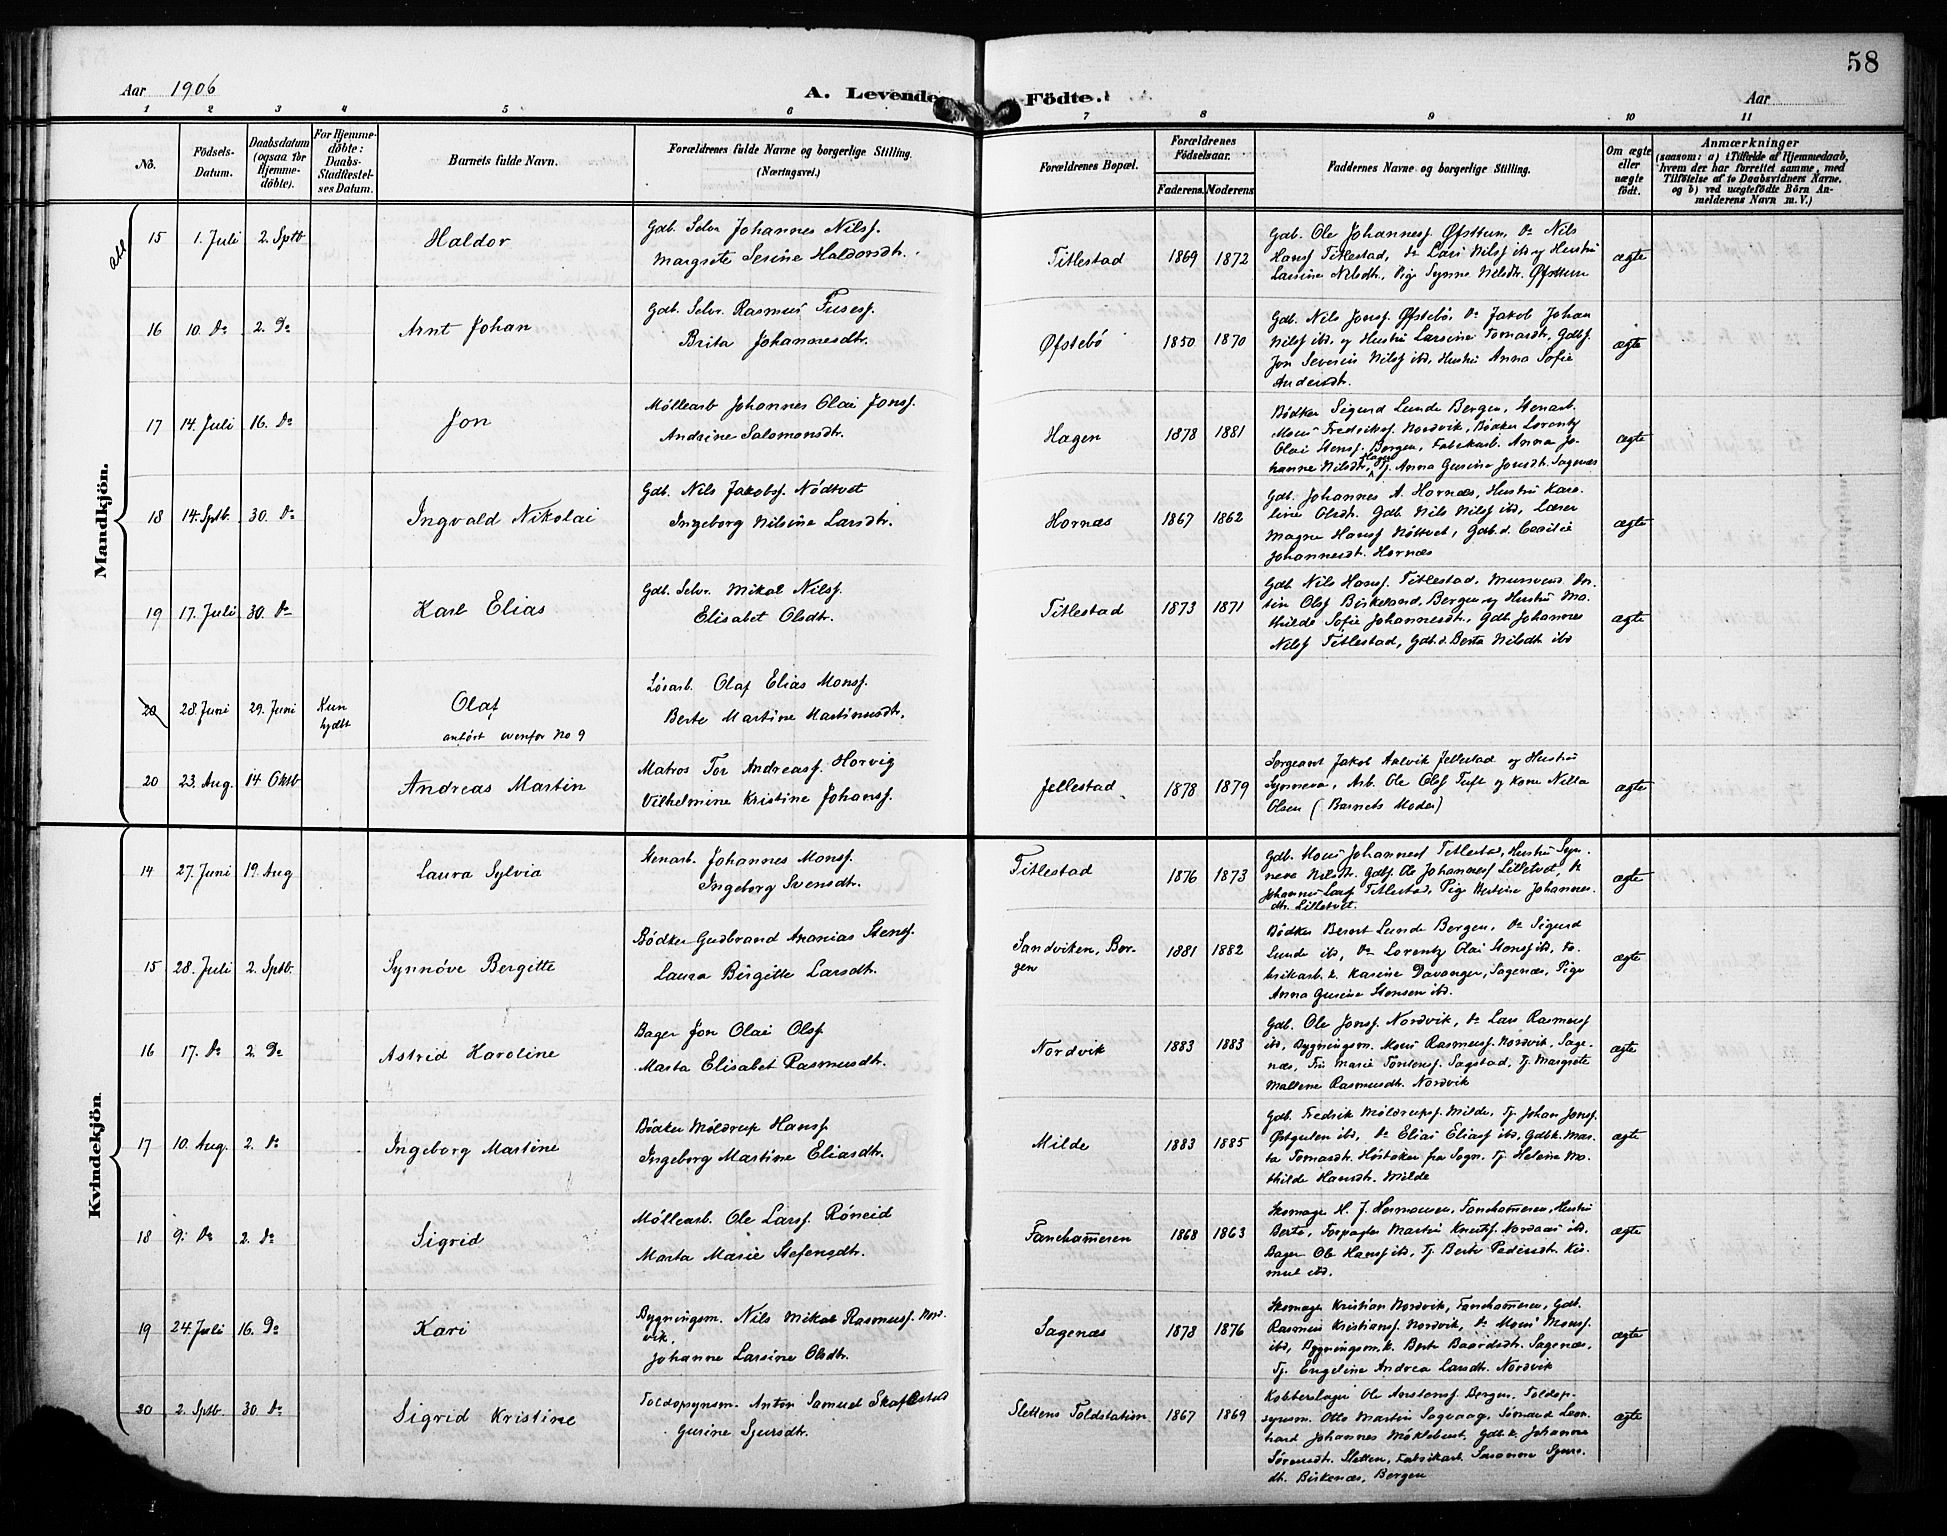 58
Aar 1906
A. Levende Födte.
Aar
1 2 3 4 5 6 7 8 9 10 11
No.
Födsels-
Datum.
Daabsdatum
(ogsaa for
Hjemme-
döbte).
For Hjemme-
döbte:
Daabs-
Stadfæstel-
ses Datum.
Barnets fulde Navn.
Forældrenes fulde Navne og borgerlige Stilling.
(Næringsvei.)
Forældrenes Bopæl.
Forældrenes
Födselsaar.
Faderens. Moderens.
Faddernes Navne og borgerlige Stilling.
Om ægte
eller
uægte
födt.
Anmærkninger
(saasom: a) i Tilfælde af Hjemmedaab,
hvem der har forrettet samme, med
Tilföielse af to Daabsvidners Navne,
og b) ved uægtefödte Börn An-
melderens Navn m.V.)
Mandkjön.
15 1. Juli 2. Sptb Haldor
Gdb. Selv Johannes Nilsf.
Margrete Serine Haldorsdt.
Titlestad 1869 1872
Gdb. Ole Johannesf Øfsttun, Do Nils
Hansf Titlestad, Do Lars Nilsf ibd og Hustru
Larsine Nilsdt, Pige Synne Nilsdt. Øfsttun
ægte
16 10. Do 2. Do Arnt Johan
Gdb. Selv. Rasmus Fusesf.
Brita Johannesdtr.
Øfstebö 1850 1870
Gdb. Nils Jonsf. Øfstebö, Do Jakob Johan
Nilsf ibd, og Hustru Larsine Tomasdt, Gdbf.
Jon Severin Nilsf ibd, Hustru Anna Sofie
Andersdtr.
ægte
17 14. Juli 16. Do Jon
Møllearb Johannes Olai Jonsf.
Andrine Salomonsdtr.
Hagen 1878 1881
Bödker Sigurd Lunde Bergen, Stenarb.
Mons Fredriksf. Nordvik, Bödker Lorentz
Olai Stensf. Bergen, Fabrikarb. Anna Jo-
hanne Nilsdtr, Hagen Tj. Anna Gurine Jonsdt. Sagenæs
ægte
18 14. Sptb. 30. Do Ingvald Nikolai
Gdb. Nils Jakobsf. Nödtvet
Ingeborg Nilsine Larsdtr.
Hornæs 1867 1862
Gdb. Johannes A. Hornæs, Hustru Karo-
line Olsdt. Gdb Nils Nilsf ibd, Lærer
Magne Hansf Nöttvet, Gdb.d. Cecilie
Johannesdt. Hornæs
ægte
19 17. Juli 30. Do Karl Elias
Gdb. Selv. Mikal Nilsf.
Elisabet Olsdtr.
Titlestad 1873 1871
Gdb. Nils Hansf. Titlestad, Mursvend
Olsf Birkeland, Bergen og Hustru Ma-
thilde Sofie Johannesdt., Gdb. Johannes
Nilsf Titlestad, Gdb.d. Berta Nilsdt ibd
ægte
20 28. Juni 29. Juni Kun
hjdbt
Olaf
anfört ovenfor No 9
Lösarb. Olaf Elias Monsf.
Berte Martine Martinusdtr.
20 23. Aug. 14 Oktb Andreas Martin
Matros Tor Andreasf. Horvig
Vilhelmine Kristine Johansf.
Jellestad 1878 1879
Sergeant Jakob Aalvik Jellestad og Hustru
Synneva, Arb. Ole Olsf Tuft og Kone
Olsen (Barnets Moder)
ægte
Kvindekjön.
14 27. Juni 19. Aug Laura Sylvia
Stenarb. Johannes Monsf.
Ingeborg Svensdt.
Titlestad 1876 1873
Gdb. Mons Johannesf Titlestad, Hustru Syn-
neva Nilsdt. Gdbf. Ole Johannesf Lilletvet, Do
Johannes Larsf Titlestad, Pige Bertine Johannes-
dtr. Lilletvet.
ægte
15 28. Juli 2. Sptb. Synnöve Bergitte
Bödker Gudbrand Ananias Stensf.
Laura Birgitte Larsdt.
Sandviken, Ber-
gen
1881 1882
Bödker Berent Lunde Bergen, Do Sigurd
Lunde ibd, Do Lorentz Olai Stensf ibd, Fa-
brikarb.k. Karine Davanger, Sagenæs, Pige
Anna Gurine Stensen ibd.
ægte
16 17. Do 2. Do Astrid Karoline
Bager Jon Olai Olsf
Marta Elisabet Rasmusdtr.
Nordvik 1883 1883
Gdb. Ole Jonsf. Nordvik, Do Lars Rasmusf
ibd, Bygningsm. Mons Rasmusf. Nordvik, Sage-
næs, Fru Marie Sagstad, Tj. Margrete
Mallene Rasmusdt. Nordvik
ægte
17 10. Aug. 2. Do Ingeborg Martine
Bödker Möldrup Hansf
Ingeborg Martine Eliasdtr.
Milde 1883 1885
Gdb. Fredrik Möldrupsf. Milde, Tj. Johan Jonsf.
Østgulen ibd, Do Elias Eliasf ibd, Gdbk. Mar-
ta Tomasdt. fra Sogn, Tj. Helene Ma-
thilde Hansdt. Milde
ægte
18 9. Do 2. Do Sigrid
Möllearb. Ole Larsf. Röneid
Marta Marie Stefensdtr.
Fanehammeren 1868 1863
Skomager H. J. Hermansen, Fanehammeren, Hustru
Berta, Forpagter Martin Knutsf. Nordaas ibd.
Bager Ole Hansf ibd, Tj. Berte Pedersdt.
ibd.
ægte
19 24. Juli 16. Do Kari
Bygningsm. Nils Mikal Rasmusf. Nord-
vik,
Johanne Larsine Olsdtr.
Sagenæs 1878 1876
Skomager Kristian Nordvik, Fanehammeren, Gdb.
Rasmus Kristiansf. Nordvik, Do Mons Monsf.
ibd, Bygningsm.k. Berte Baardsdt. Sagenæs,
Tj. Engeline Andrea Larsdt. Nordvik
ægte
20 2. Sptb 30. Do Sigrid Kristine
Toldopsynsm. Anton Samuel Skaflestad
Gurine Sjursdtr.
Slettens Toldstation 1867 1869
Kobberslager Ole Bergen, Toldop-
synsm. Otto Martin Sagvaag, Sömand Leon-
hard Johannes Möklebust, Gdb.k. Johanne
Sörensdt. Sletten, Fabrikarb. Susanne Sjurs-
dt. Birkenæs, Bergen
ægte